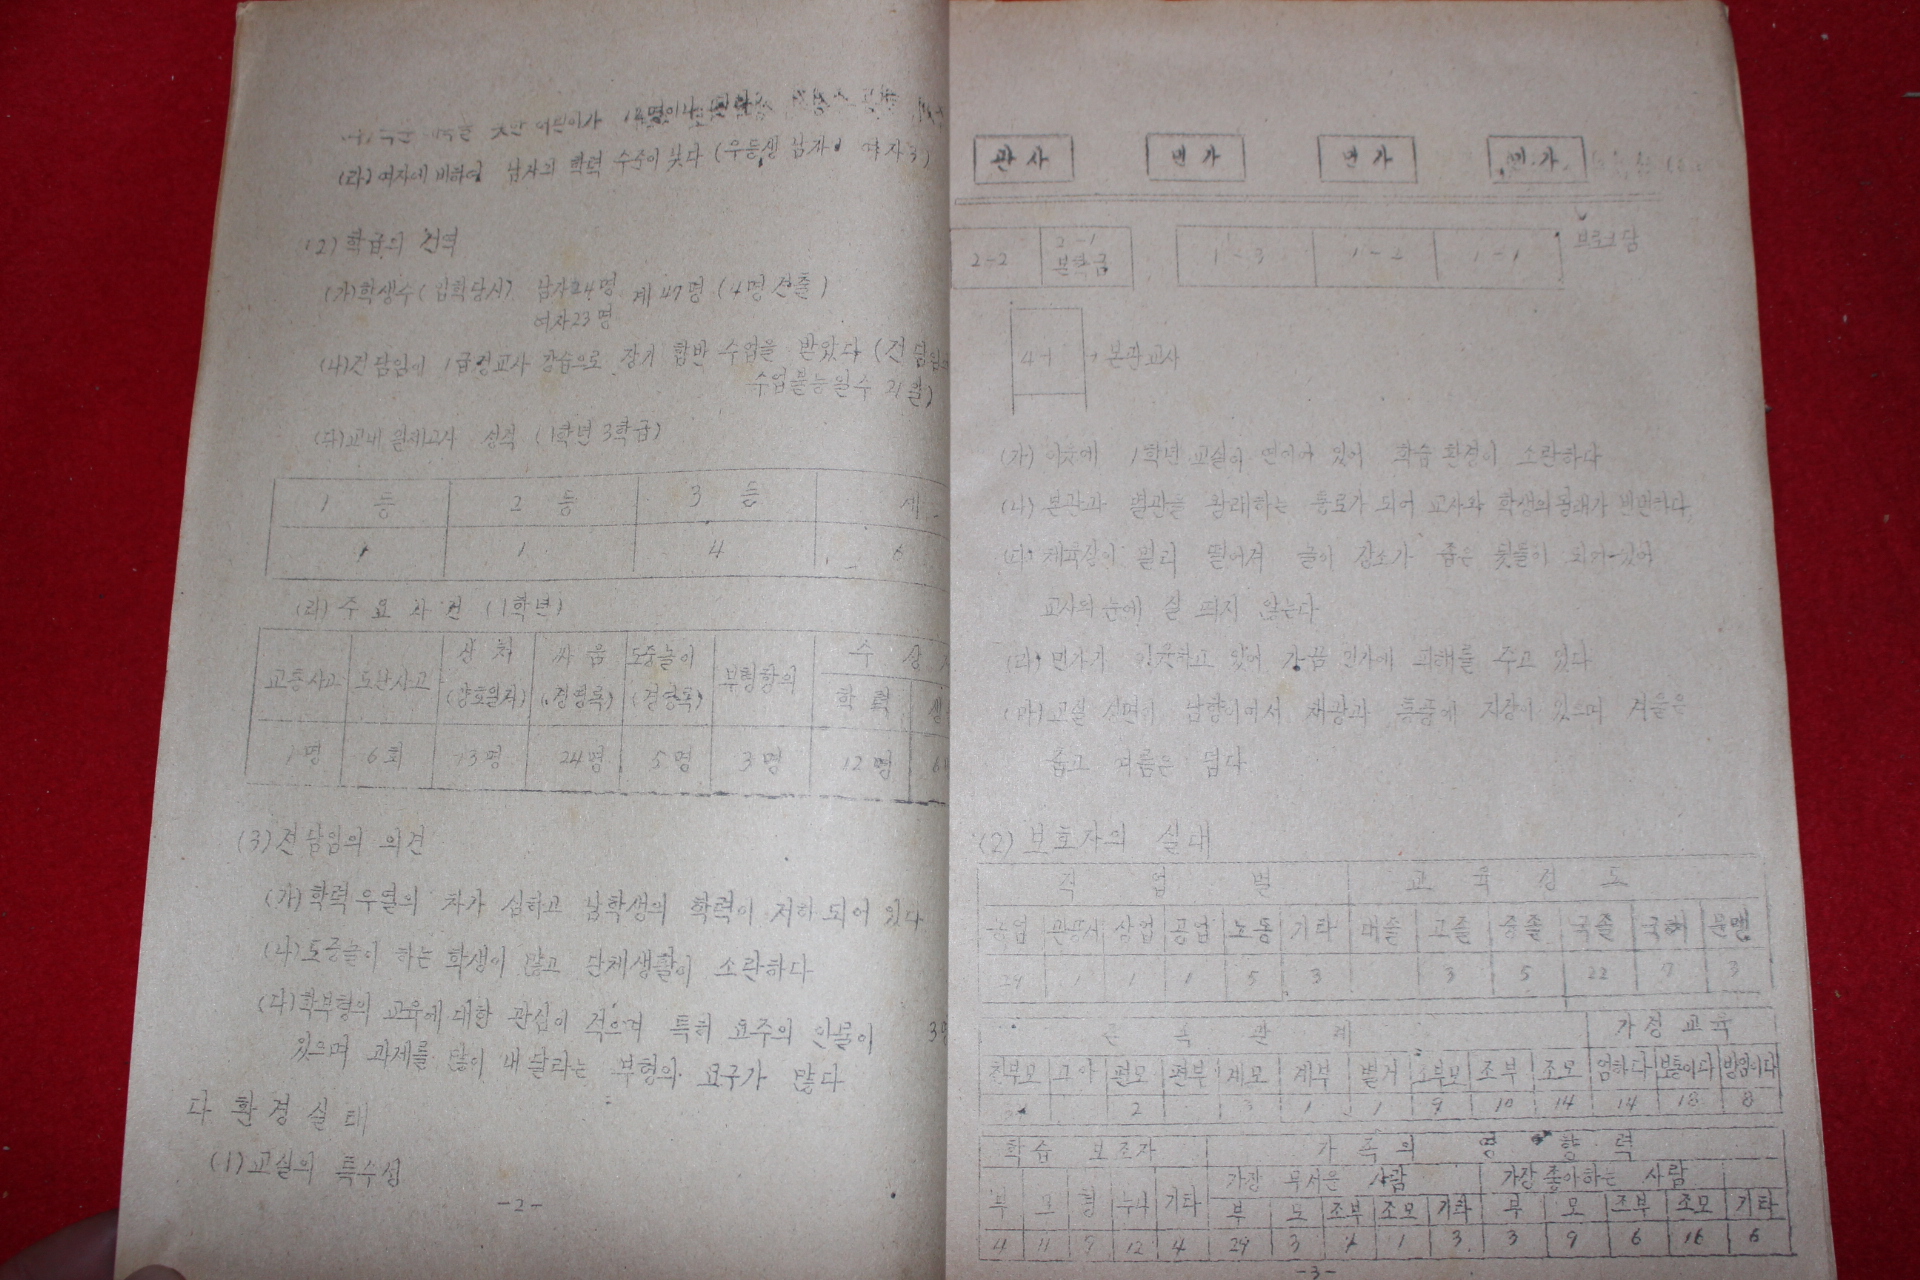 (라) 여자에 비하여 남자의 학력 수준이 낮다 (우등생 남자1 여자3)
(2) 학급의 전력
(가) 학생수 (입학당시) 남자24명 계 47명 (4명 전출)
여자23명
(나) 전담임이 1급정교사 강습으로 장기 합반 수업을 받았다 (전담임
수업불능일수 21일)
(다) 교내 일제고사 성적 (1학년 3학급)
1 등 2 등 3 등 계
1 1 4 6
(라) 주요 사건 (1학년)
교통사고 도난사고 상처 싸움 도중놀이 부형항의 수 상
(양호일지) (경향록) (경향록) 학력
1명 6회 13명 24명 5명 3명 12명
(3) 전담임의 의견
(가) 학력 우열의 차가 심하고 남학생의 학력이 저하 되어 있다
(나) 도중놀이 하는 학생이 많고 단체생활이 소란하다
(다) 학부형의 교육에 대한 관심이 적으며 특히 요주의 인물이 3명
있으며 과제를 많이 내 달라는 부형의 요구가 많다
다 환경실태
(1) 교실의 특수성
-2-
관사 민가 민가 민가
브로크담
2-2 2-1 1-3 1-2 1-1
본학급
4-1 본관교사
(가) 이웃에 1학년 교실이 연이어 있어 학습 환경이 소란하다
(나) 본관과 별관을 왕래하는 통로가 되어 교사와 학생의 왕래가 빈번하다
(다) 체육장이 멀리 떨어져 놀이 장소가 좁은 뒷뜰이 되어 있어
교사의 눈에 잘 띄지 않는다
(라) 민가가 이웃하고 있어 가끔 민가에 피해를 주고 있다
(마) 교실 전면이 남향이어서 채광과 통풍에 지장이 있으며 겨울은
춥고 여름은 덥다
(2) 보호자의 실태
직 업 별 교 육 정 도
농업 관공서 상업 공업 노동 기타 대졸 고졸 중졸 국졸 국퇴 문맹
29 1 1 1 5 3 3 5 22 7 3
존 속 관 계 가정교육
친부모 고아 편모 편부 계모 계부 별거 조부모 조부 조모 엄하다 보통이다 방임이다
2 3 1 1 9 10 14 14 18 8
학습 보조자 가 족 의 영 향 력
가장 무서운 사람 가장 좋아하는 사람
부 모 형 누나 기타 부 모 조부 조모 기타 부 모 조부 조모 기타
4 11 9 12 4 29 3 1 1 3 3 9 6 16 6
-3-